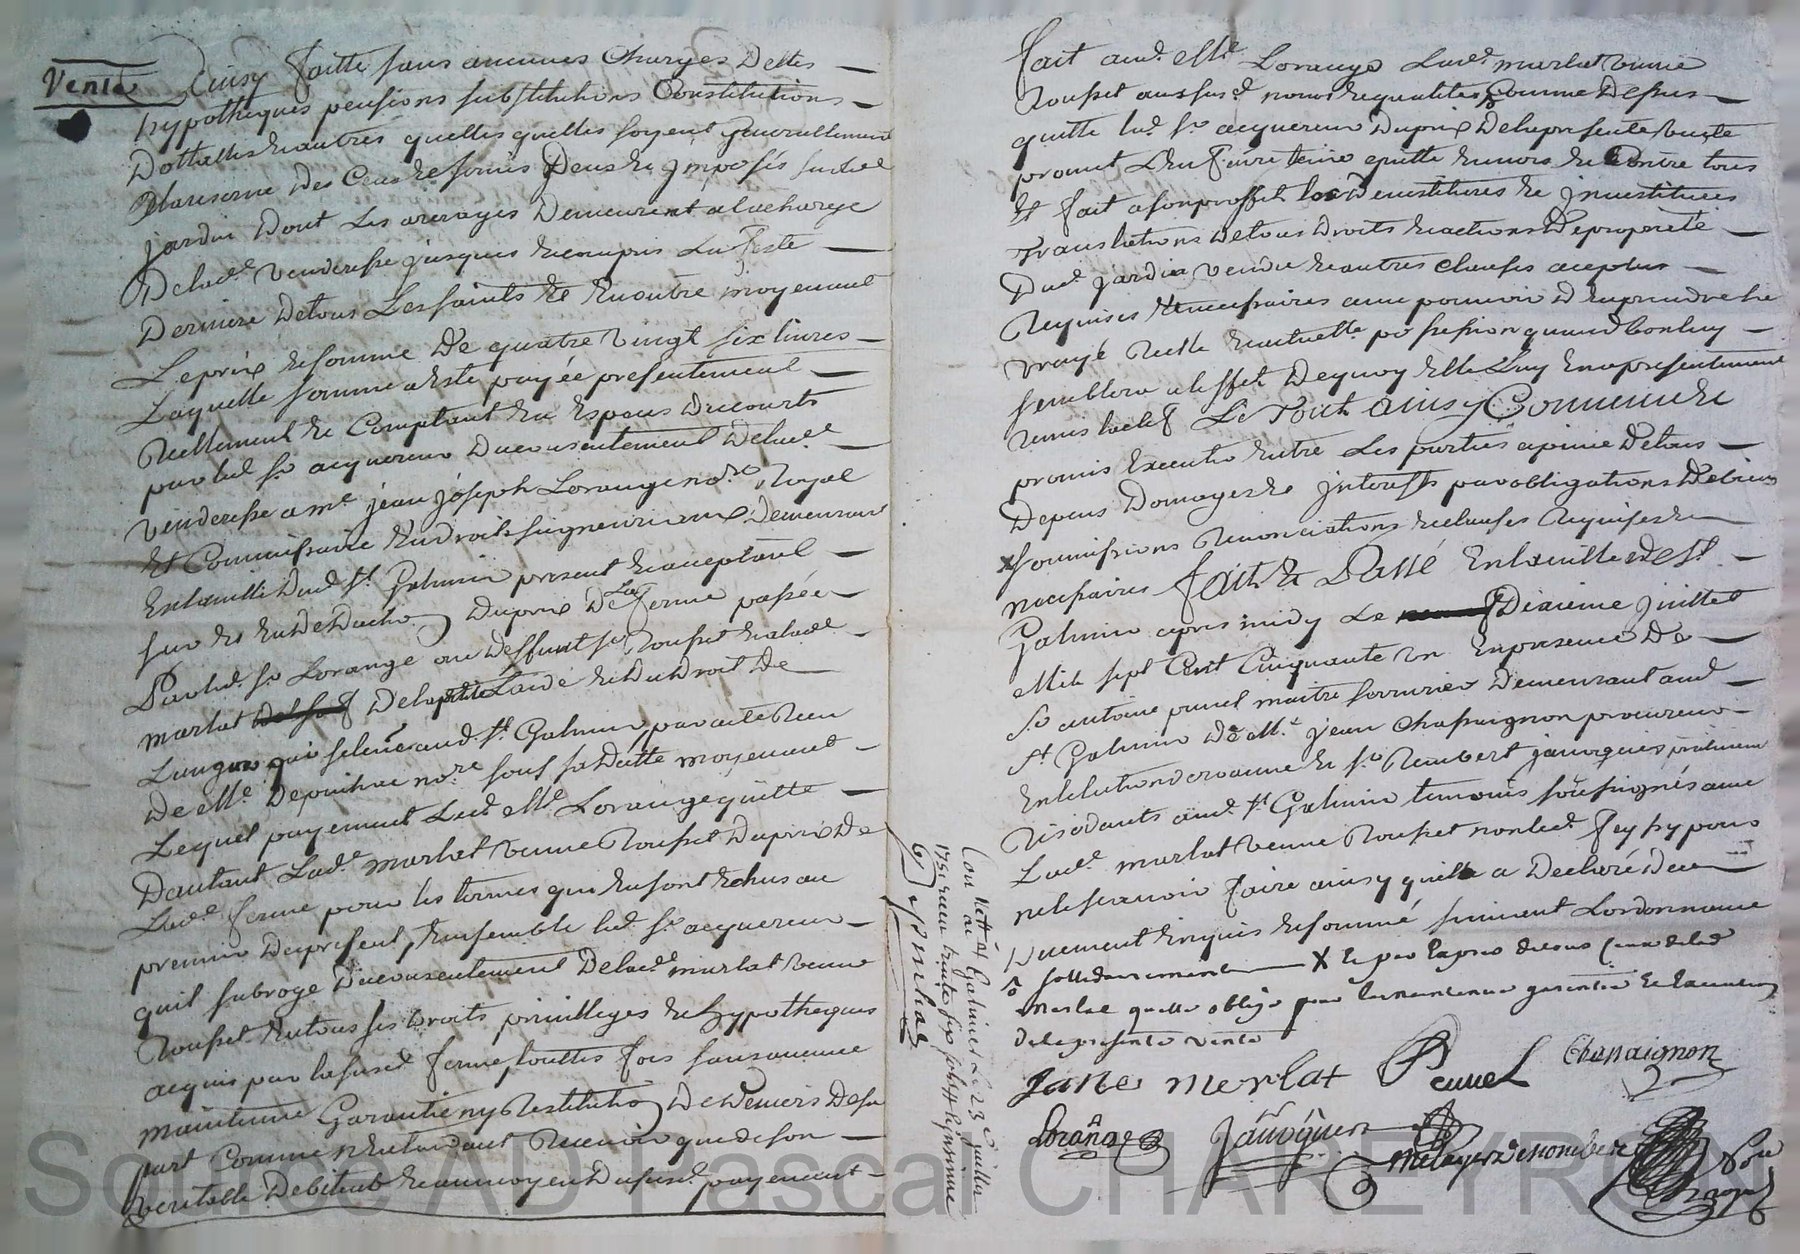 Vente
Ainsy faitte sans aucunes Charges Dettes
hypotheques pensions substitutions Constitutions
Dottalles et autres quelles quelles soyent generallement
Des Cens et servis Deus et imposés sur led
jardin Dont Les arerages Demeurent a la charge
De lad.e venderesse jusques et compris La feste
Derniere De tous Les saints et En outre moyennant
Le prix et somme De quatre vingt six livres
Laquelle somme a Esté payée presentement
Reellement et Comptant En Especes Du cours
par led. Sr acquereur Du consentement De lad.e
venderesse a me jean joseph Lorange no.re Royal
Et Commissaire En Droits seigneuriaux Demeurant
En la ville Dud St Galmier present Et acceptant
sur et En Deduction Du prix De La ferme passée
Par led. Sr Lorange au Deffunt Sr Roußet Et a lad.e
marlat De la petite Laide Et Du Droit De
Langue qui se leve aud St Galmier par acte Receu
De Me Depuihac no.re sous sa Datte moyennant
Lequel payement Led Me Lorange quitte
D'autant Lad.e marlat veuve Roußet Du prix De
Lad.e ferme pour les termes qui En sont Echus au
premier Du present, Ensemble led Sr acquereur
qu'il subroge Du consentement De lad.e marlat veuve
Roußet En tous ses Droits privilleges Et hypotheques
acquis par la susd. ferme touttes fois sans aucune
maintenue Garantie ny Restitution De Deniers De sa
part Comme N'entendant Recevoir que De son
veritable Debiteur Et au moyen Du susd. payement
fait aud. Me Lorange Lad.e marlat veuve
Roußet aux susd. noms Et qualites Comme Dessus
quitte led. Sr acquereur Du prix De la presente vente
promet L'En faire tenir quitte Envers Et Contre tous
Et fait a son proffit les Devestitures Et jnvestitures
Translations De tous Droits Et actions De proprieté
Dud. jardin vendu Et autres clauses
Requises Et necessaires avec pouvoir D'En prendre la
vraye Reelle Et actuelle possession quand bon luy
semblera a L'effet De quoy Elle Luy En a presentement
remis la clef Le Tout Ainsy Convenu Et
promis Executer Entre Les parties a peine De tous
Depens Domages Et jnterests par obligations De biens
X soumissions Renonciations Et clauses Requises Et
necessaires fait Et Passé En la ville De St
Galmier apres midy Le Dixieme juillet
Mil sept Cent Cinquante Un En presence De
Sr antoine prunel maitre serrurier Demeurant aud
St Galmier De Me jean Chassaignon procureur
En l'election de roanne Et Sr Rembert jauvguis
Residants aud. St Galmier temoins soussignés avec
Lad.e marlat veuve Roußet non led. feyßy pour
ne le scavoir faire ainsy qu'il a Declaré De ce
Duement Enquis Et sommé suivant L'ordonnance
sollidairement X Et par Expres
marlat quelle oblige pour la maintenue garentie Et
de la presente vente
Jane merlat Prunel Chassaignon
Lorange Jauvguis
Con.lle a St Galmier Le 23e juillet
1751 Receu trente six sols